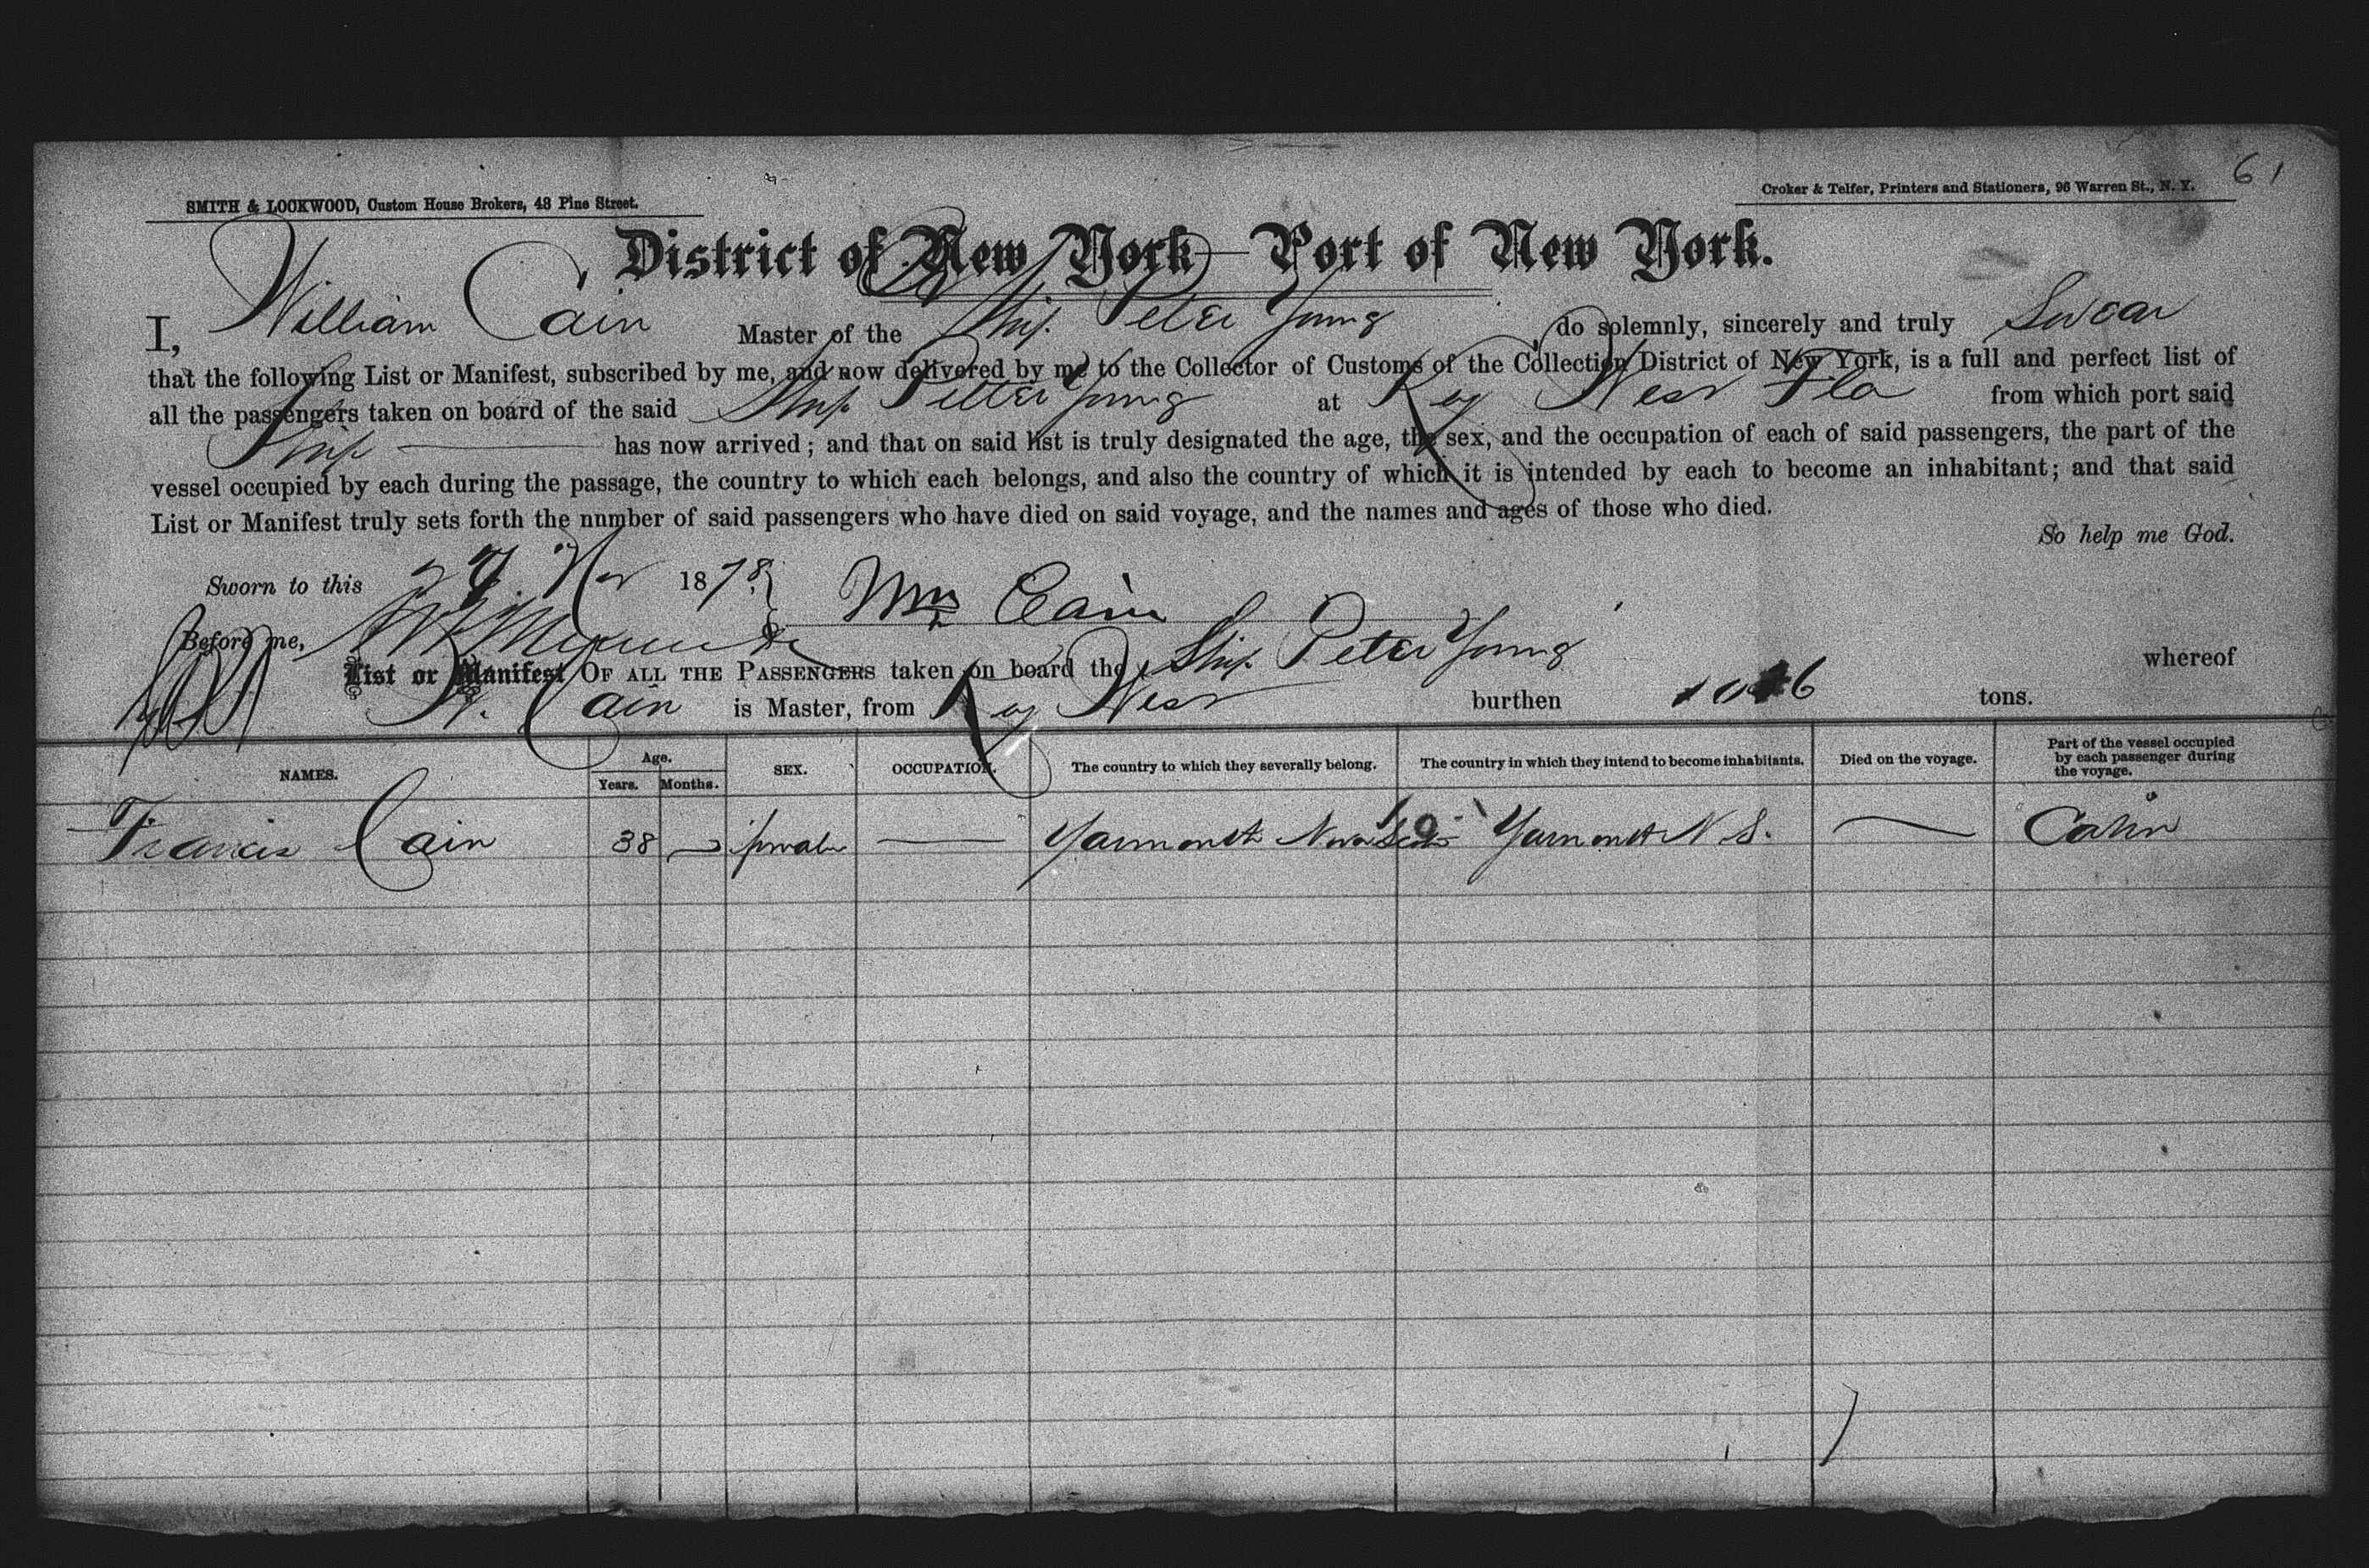 61
SMITH & LOCKWOOD, Custom House Brokers, 48 Pine Street.
Croker & Telfer, Printers and Stationers, 96 Warren St., N. Y.
District of New York—Port of New York.
I, William Cain Master of the Ship Peter Young, do solemnly, sincerely and truly Swear
that the following List or Manifest, subscribed by me, and now delivered by me to the Collector of Customs of the Collection District of New York, is a full and perfect list of
all the passengers taken on board of the said Ship Petter Young at Key West Fla from which port said
Ship has now arrived; and that on said list is truly designated the age, the sex, and the occupation of each of said passengers, the part of the
vessel occupied by each during the passage, the country to which each belongs, and also the country of which it is intended by each to become an inhabitant; and that said
List or Manifest truly sets forth the nnmber of said passengers who have died on said voyage, and the names and ages of those who died.
So help me God.
Sworn to this 29 Nov 1878 Wm Cain
Before me,
List or Manifest OF ALL THE PASSENGERS taken on board the Ship Peter Young whereof
W. Cain is Master, from Key West burthen tons.
NAMES. Age. Years. Months. SEX. OCCUPATION. The country to which they severally belong. The country in which they intend to become inhabitants. Died on the voyage. Part of the vessel occupied by each passenger during the voyage.
Francis Cain 38 — female — Yarmouth Nova Scotia Yarmouth N. S. — Cabin